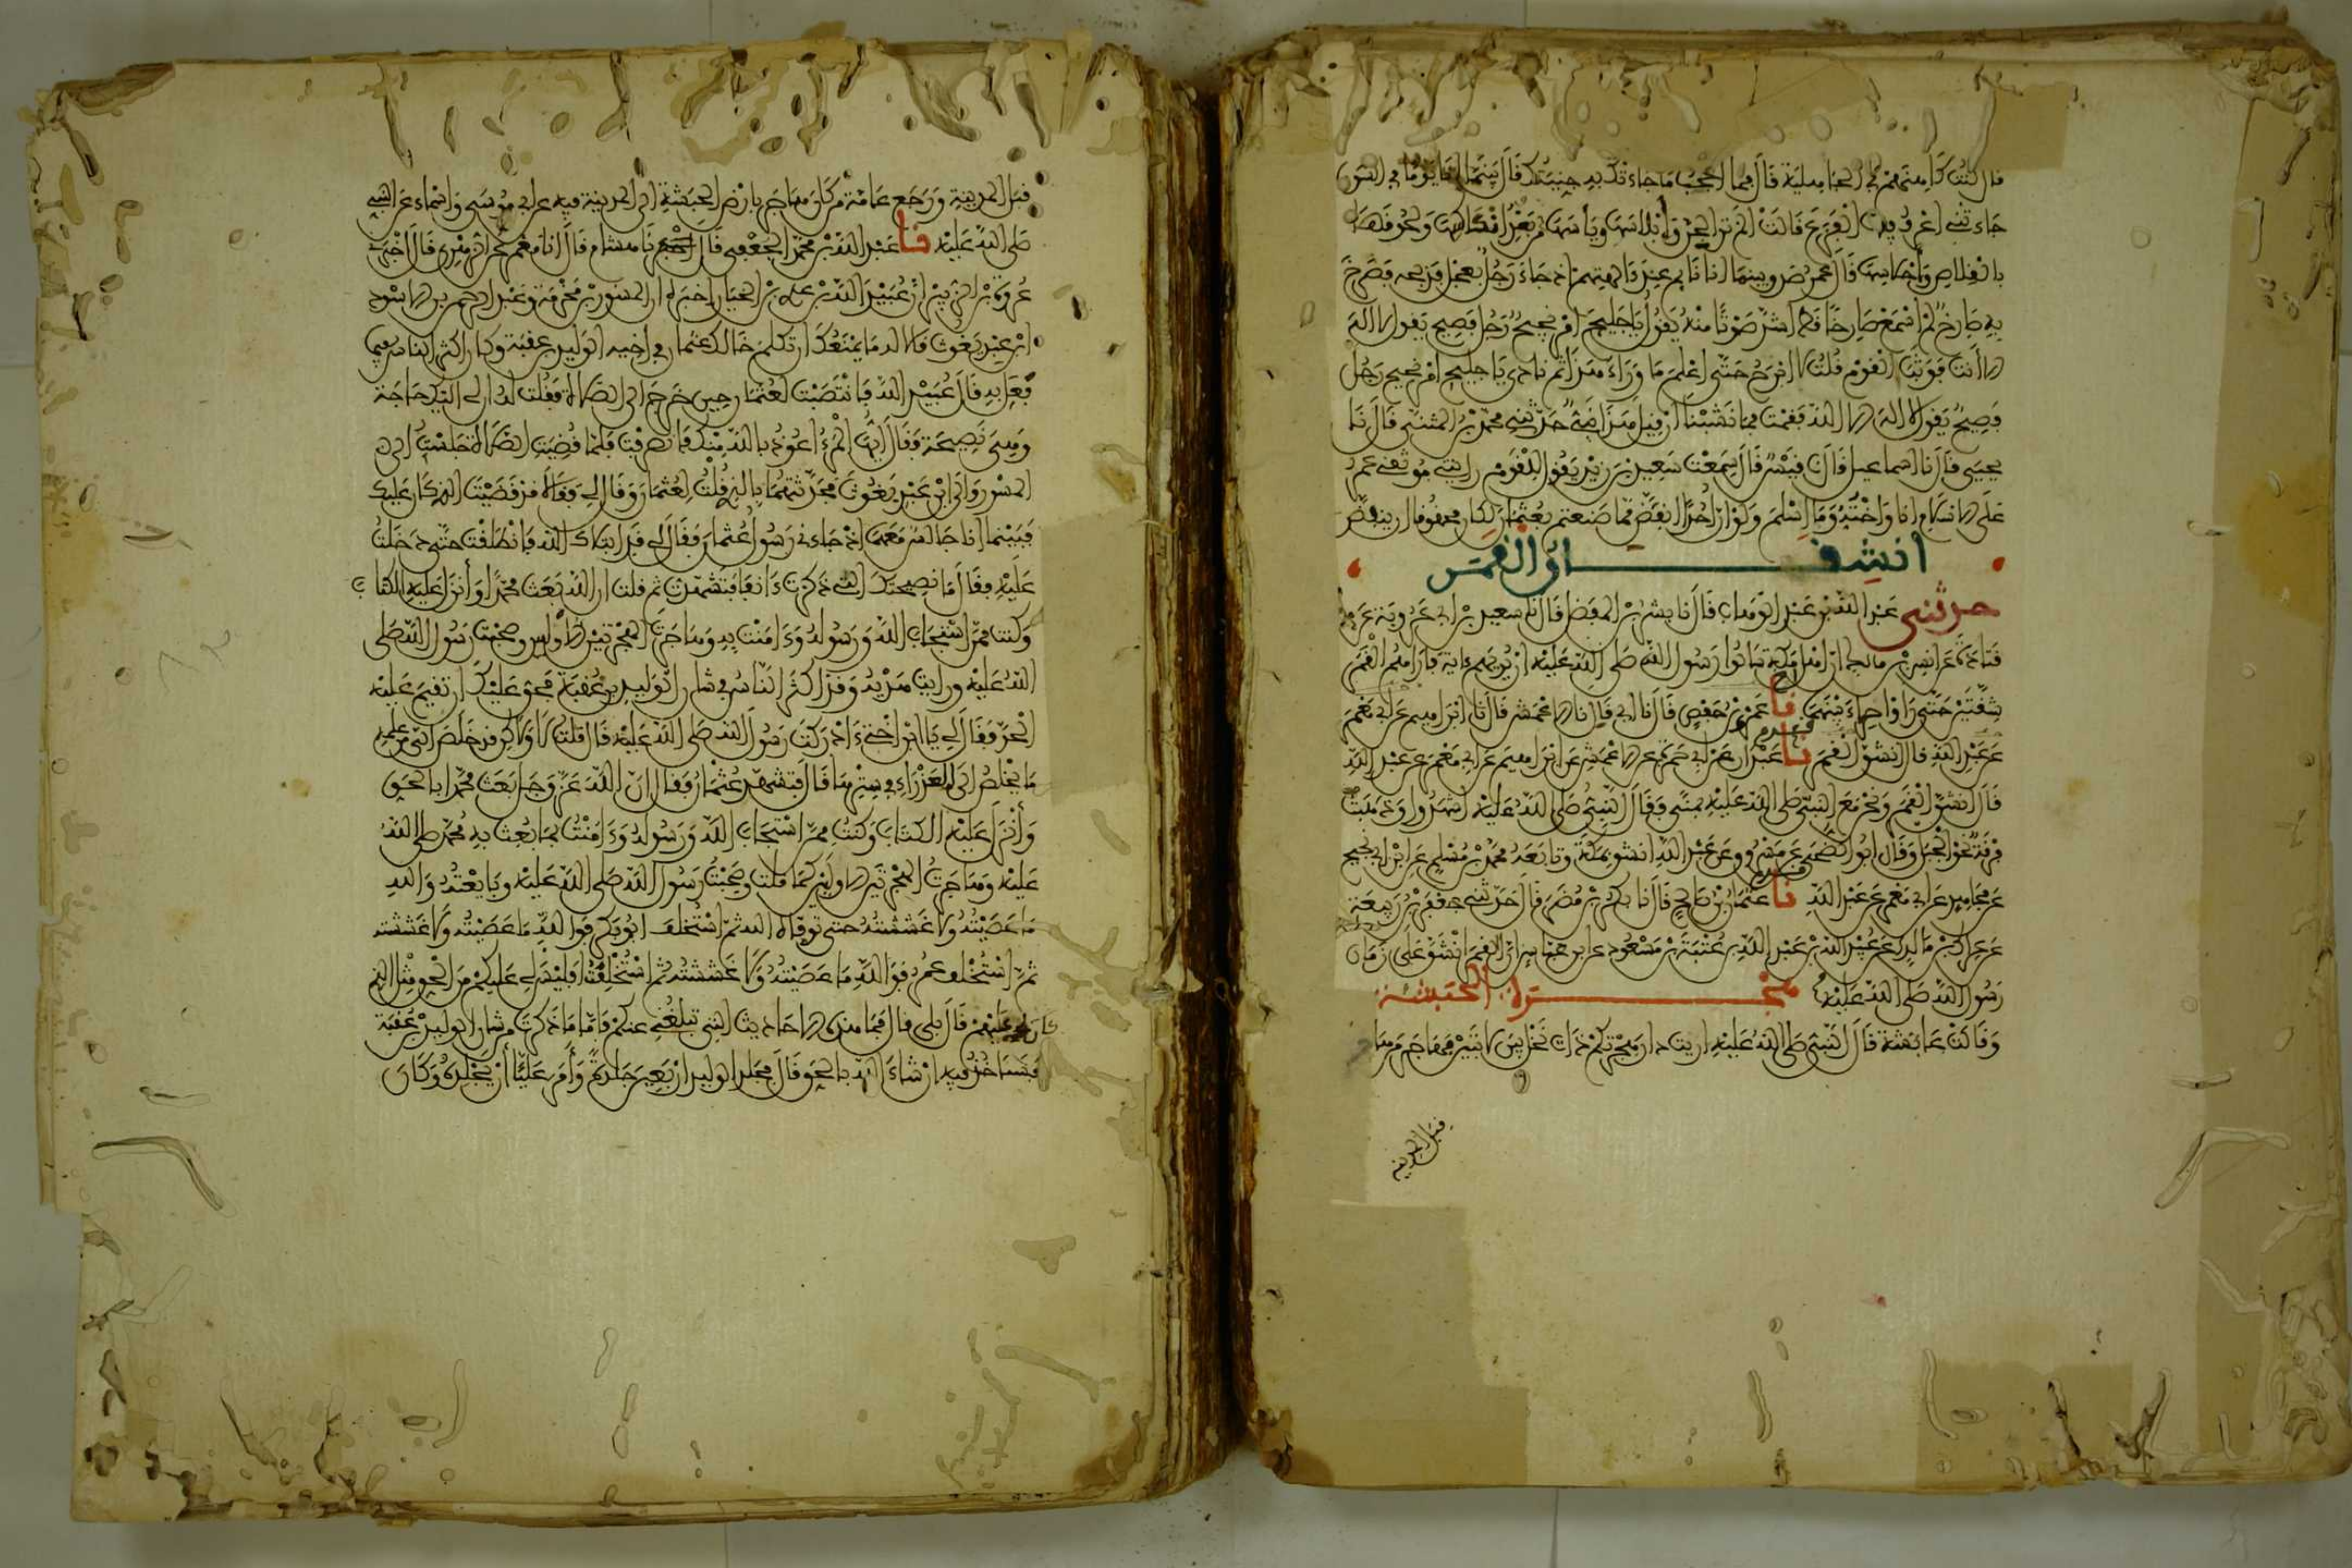 قال كنت كاهنهم في الجاهلية قال فما اعجب ما جاءتك به جنيتك قال بينما انا يوما في السوق
جاءتني اعرف فيها الفزع قالت الم تر الجن وابلاسها وياسها من بعد انكاسها ولحوقها
بالقلاص واحلاسها قال عمر صدق وبينما انا نائم عند الهتهم اذ جاء رجل بعجل فذبحه فصرخ
به صارخ لم اسمع صارخا قط اشد صوتا منه يقول يا جليح امر نجيح رجل فصيح يقول لا اله
الا انت فوثب القوم قلت لا ابرح حتى اعلم ما وراء هذا ثم نادى يا جليح امر نجيح رجل
فصيح يقول لا اله الا الله فقمت فما نشبنا ان قيل هذا نبي حدثني محمد بن المثنى قال نا
يحيى قال نا اسماعيل قال نا قيس قال سمعت سعيد بن زيد يقول للقوم رايتني موثقي عمر
على الاسلام انا واخته وما اسلم ولو ان احدا انقض مما صنعتم بعثمان لكان محقوقا ان ينقض
انشقاق القمر
حدثني عبد الله بن عبد الوهاب قال نا بشر بن المفضل قال نا سعيد بن ابي عروبة عن
قتادة عن انس بن مالك ان اهل مكة سالوا رسول الله صلى الله عليه ان يريهم ءاية فاراهم القمر
شقتين حتى راوا حراء بينهما نا عمر بن حفص قال نا ابي قال نا الاعمش قال نا ابراهيم عن ابي معمر
عن عبد الله قال انشق القمر نا عبدان عن ابي حمزة عن الاعمش عن ابراهيم عن ابي معمر عن عبد الله
قال انشق القمر ونحن مع النبي صلى الله عليه بمنى فقال النبي صلى الله عليه اشهدوا وذهبت
فرقة نحو الجبل وقال ابو الضحى عن مسروق عن عبد الله انشق بمكة وتابعه محمد بن مسلم عن ابن ابي نجيح
عن مجاهد عن ابي معمر عن عبد الله نا عثمان بن صالح قال نا بكر بن مضر قال حدثني جعفر بن ربيعة
عن عراك بن مالك عن عبيد الله بن عبد الله بن عتبة بن مسعود عن ابن عباس ان القمر انشق على زمان
رسول الله صلى الله عليه هجرة الحبشة
وقالت عائشة قال النبي صلى الله عليه اريت دار هجرتكم ذات نخل بين لابتين فهاجر من هاجر
قبل المدينة
قبل المدينة ورجع عامة من كان هاجر بارض الحبشة الى المدينة فيه عن ابي موسى واسماء عن النبي
صلى الله عليه نا عبد الله بن محمد الجعفي قال نا هشام قال انا معمر عن الزهري قال اخبرني
عروة بن الزبير ان عبيد الله بن عدي بن الخيار اخبره ان المسور بن مخرمة وعبد الرحمن بن الاسود
ابن عبد يغوث قالا له ما يمنعك ان تكلم خالك عثمان في اخيه الوليد بن عقبة وكان اكثر الناس فيما
فعل به قال عبيد الله فانتصبت لعثمان حين خرج الى الصلاة فقلت له ان لي اليك حاجة
وهي نصيحة فقال ايها المرء اعوذ بالله منك فانصرفت فلما قضيت الصلاة جلست الى
المسور والى ابن عبد يغوث فحدثتهما بالذي قلت لعثمان وقال لي فقالا قد قضيت الذي كان عليك
فبينما انا جالس معهما اذ جاءني رسول عثمان فقالا لي قد ابتلاك الله فانطلقت حتى دخلت
عليه فقال ما نصيحتك التي ذكرت ءانفا فتشهدت ثم قلت ان الله بعث محمدا وانزل عليه الكتاب
وكنت ممن استجاب لله ورسوله وءامنت به وهاجرت الهجرتين الاوليين وصحبت رسول الله صلى
الله عليه ورايت هديه وقد اكثر الناس في شان الوليد بن عقبة فحق عليك ان تقيم عليه
الحد فقال لي يا ابن اختي ءادركت رسول الله صلى الله عليه قال قلت لا ولاكن قد خلص الي من علمه
ما يخلص الى العذراء في سترها قال فتشهد عثمان فقال ان الله عز وجل بعث محمدا بالحق
وانزل عليه الكتاب وكنت ممن استجاب لله ورسوله وءامنت بما بعث به محمد صلى الله
عليه وهاجرت الهجرتين الاوليين كما قلت وصحبت رسول الله صلى الله عليه وبايعته والله
ما عصيته ولا غششته حتى توفاه الله ثم استخلف ابو بكر فوالله ما عصيته ولا غششته
ثم استخلف عمر فوالله ما عصيته ولا غششته ثم استخلفت افليس لي عليكم من الحق مثل الذي
كان لهم علي قال بلى قال فما هذه الاحاديث التي تبلغني عنكم فاما ما ذكرت من شان الوليد بن عقبة
فسناخذ فيه ان شاء الله بالحق قال فجلد الوليد اربعين جلدة وامر عليا ان يجلده وكان